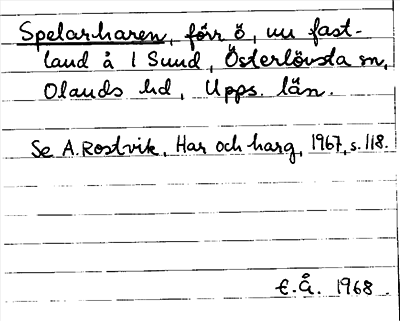 Spelarharen, förr ö, nu fast-
land å 1 Sund, Österlövsta sn,
Olands hd, Upps. län.
Se A. Rostvik, Har och harg, 1967, s. 118.
E.Å. 1968.